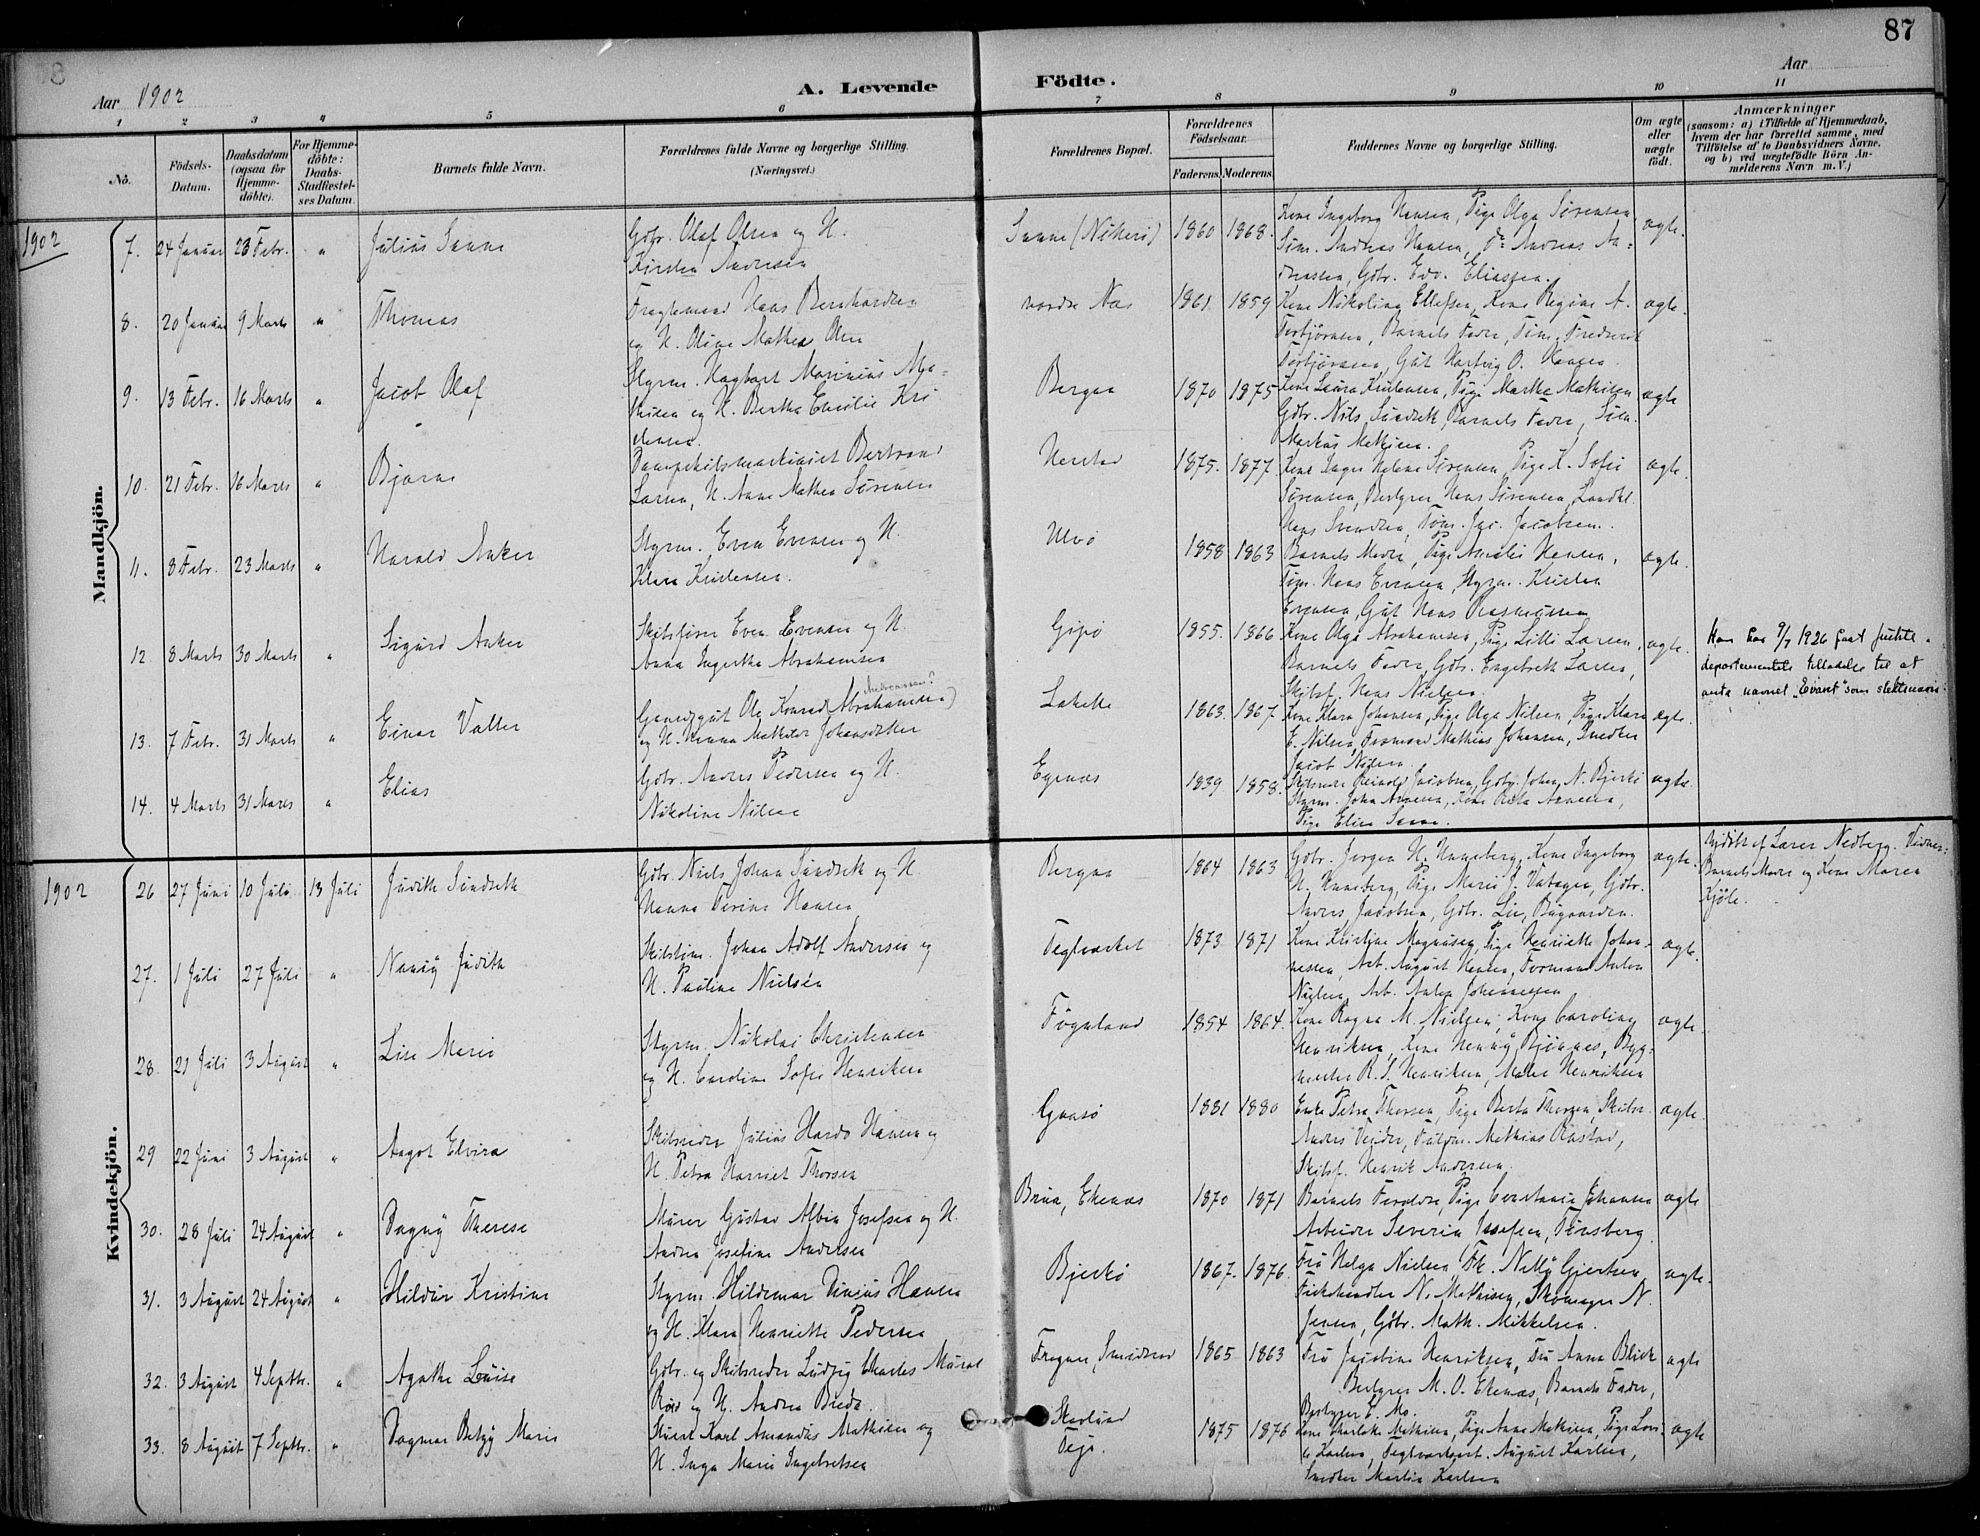 87
Aar 1902
A. Levende Födte.
Aar
1 2 3 4 5 6 7 8 9 10 11
No.
Födsels-Datum.
Daabsdatum (ogsaa for Hjemme-döbte).
For Hjemme-döbte: Daabs-Stadfæstel-ses Datum.
Barnets fulde Navn.
Forældrenes fulde Navne og borgerlige Stilling. (Næringsvei.)
Forældrenes Bopæl.
Forældrenes Födselsaar.
Faderens. Moderens.
Faddernes Navne og borgerlige Stilling.
Om ægte eller uægte födt.
Anmærkninger
(saasom: a) i Tilfælde af Hjemmedaab,
hvem der har forrettet samme, med
Tilföielse af to Daabsvidners Navne,
og b) ved uægtefödte Börn An-
melderens Navn m. V.)
1902
Mandkjön.
7. 24 Januar 23 Febr. " Julius Sanne
Gbr. Olaf Olsen og H.
Kirsten Andersen
Sanne 1860 1868.
Kone Ingeborg Hansen, Pige Olga Sørensen
Tøm. Andreas Hansen, Do Andreas An-
dreassen, Gbr. Edv. Eliassen.
ægte.
8. 20 Januar 9 Marts " Thomas
Fragtemand Hans Bernhardsen
og H. Oline Mathea Olsen
nordre Næs 1861 1859
Kone Nikoline Ellefsen, Kone Regine A.
Torbjørnsen, Barnets Fader, Tøm. Frederik
Torbjørnsen, Gut Hartvig O. Hansen.
ægte.
9. 13 Febr. 16 Marts " Jacob Olaf
Styrm. Hagbart Marinius Ma-
thisen og H. Berthe Cecilie Kri
stensen.
Bergan 1870 1875
Kone Laura Kristensen, Pige Marthe Mathisen
Gbr. Nils Sundseth, Barnets Fader, Tøm.
Markus Mathisen.
ægte
10. 21 Febr. 16 Marts " Bjarne
Dampskibsmaskinist Bertrand
Larsen, H. Anne Mathea Sørensen
Herstad 1875. 1877.
Kone Inger Helene Sørensen, Pige K. Sofie
Sørensen, Bestyrer Hans Sørensen, Landhl.
Hans Svendsen, Tøm. Jac. Jacobsen.
ægte.
11. 8 Febr. 23 Marts " Harald Anker
Styrm. Even Evensen og H.
Klara Kristensen.
Ulvø 1858 1863
Barnets Moder, Pige Amalie Hansen,
Tøm. Hans Evensen, Styrm. Kristen
Evensen, Gut Hans Rasmussen
ægte.
12 8 Marts 30 Marts " Sigurd Anker
Skibsfører Even Evensen og H.
Anna Ingertha Abrahamsen
Gipø 1855. 1866
Kone Olga Abrahamsen, Pige Lilli Larsen,
Barnets Fader, Gbr. Engebreth Larsen,
Skibsf. Hans Nielsen.
ægte.
Han har 9/7 1926 faat justits-
departementets tilladelse til at
anta navnet "Evant" som slektsnavn.
13. 7 Febr. 31 Marts " Einar Valter
Ole Konrad Abrahamsen (Andreassen?)
og H. Hanna Mathilde Johansdatter
Lakelle 1863. 1867.
Kone Klara Johansen, Pige Olga Nilsen, Pige Klara
E. Nilsen, Formand Mathias Johansen, Snedker
Jacob Nilsen.
ægte.
14. 4 Marts 31 Marts " Elias
Gbr. Anders Pedersen og H.
Nikoline Nilsen
Egenæs 1839 1858.
Skibsreder Reinolt Jacobsen, Gbr. Johan N. Bjerkø
Styrm. Johan Arnesen, Kone Arnesen,
Pige Elise Sanne.
ægte.
1902
Kvindekjön.
26 27 Juni 10 Juli 13 Juli Judith Sundseth
Gbr. Niels Johan Sundseth og H.
Hanna Hansen
Bergan 1864 1863
Gbr. Jørgen H. Unneberg, Kone Ingeborg
H. Unneberg, Pige Marie J. Gbr.
Anders Jacobsen, Gbr. Lie, Bugaarden.
ægte.
Hjdøbt af Lærer Nedberg. Vidner:
Barnets Moder og Kone Maren
Kjøle.
27. 1 Juli 27 Juli " Nanny Judith
Skibstøm. Johan Adolf Andersen og
H. Pauline Nielsen
Teglværket 1873 1871
Kone Kristine Magnusen, Pige Henriette Johan-
nessen, Arb. August Hansen, Formand Anton
Nielsen, Arb. Anton Johannessen
ægte.
28. 21 Juli 3 August " Lise Marie
Styrm. Nikolai Christensen
og H. Caroline Sofie Henriksen
Føynland 1854 1864.
Kone Ragna M. Nielsen, Kone Caroline
Henriksen, Kone Henny Bjønnes, Byg-
mester R. S. Henriksen, Maler Henriksen
ægte.
29 22 Juni 3 August " Aagot Elvira
Skibsreder Julius Hansen og
H. Petra Harriet Thorsen
Gaasø 1881 1880
Enke Petra Thorsen, Pige Berta Thorsen, Skibsr.
Anders Veider, Mathias Rastad,
Skibsf. Henrik Andersen.
ægte.
30. 28 Juli 24 August " Dagny Therese
Murer Gustav Albin Josefsen og H.
Andrea Josefine Andersen
Brua, Ekenæs 1870 1871
Barnets Forældre, Pige Constance Johansen
Arbeider Severin Josefsen, Tønsberg.
ægte
31. 3 August 24 August " Hildur Kristine
Styrm. Hildemar Dinius Hansen
og H. Klara Henriette Pedersen
Bjerkø 1867. 1876.
Fru Helga Nielsen, Frk. Nelly Gjertsen
Fiskehandler N. Mathisen, Skomager N.
Jensen, Gbr. Math. Mikkelsen.
ægte.
32. 3 August 4 Septbr. " Agathe Louise
Gbr. og Skibsreder Ludvig Charles
og H. Andrea Breda.
1865 1863
Fru Jacobine Henriksen, Fru Anna Blick
Bestyrer M. O. Ekenæs, Barnets Fader,
Bestyrer E. Mo.
ægte
33. 8 August 7 Septbr. " Dagmar Betzy Marie
Karl Amandus Mathisen og
H. Inga Marie Ingebretsen
Skerlund
Teje. 1875 1876
Kone Charlotte Mathisen, Pige Anna Mathisen, Pige Lovi-
se Karlsen, August Karlsen,
Snedker Martin Karlsen
ægte